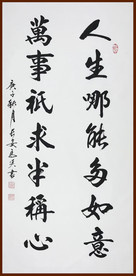 人生哪能多如意
萬事祇求半稱心
庚子秋月